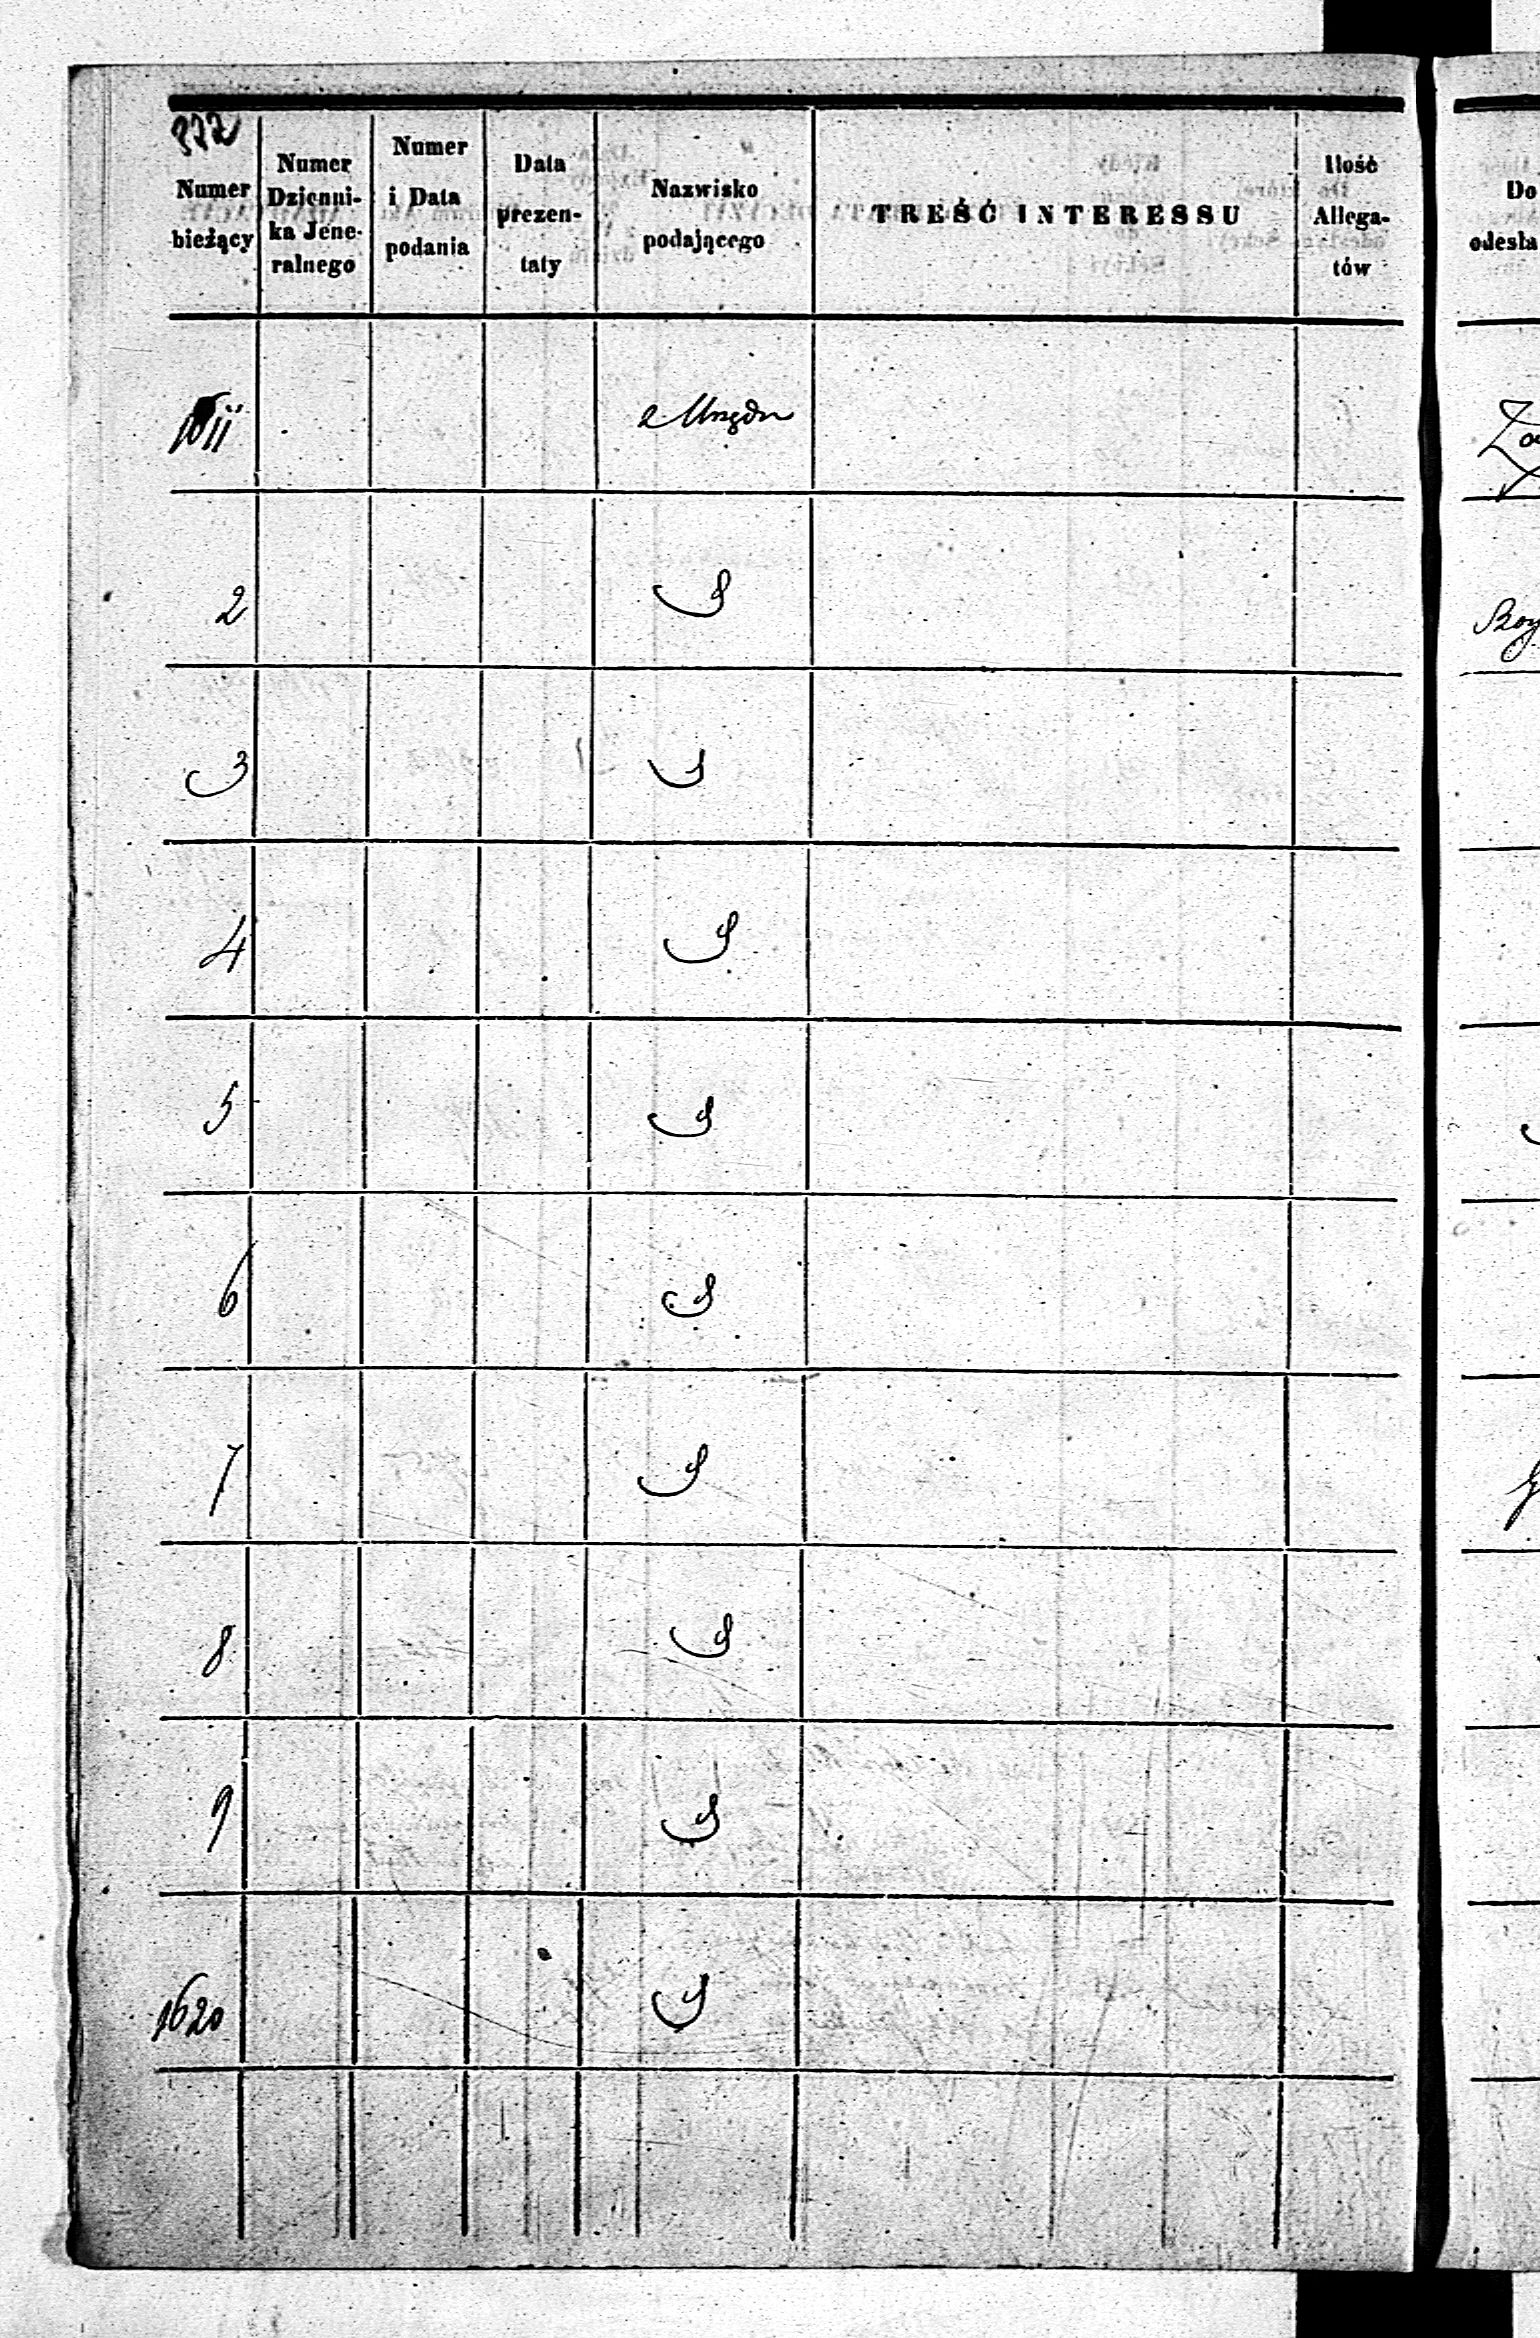 Numer
bieżący
Numer
Dzienni-
ka Jene-
ralnego
Numer
i Data
podania
Data
prezen-
taty
Nazwisko
podającego
TREŚĆ INTERESSU
Ilość
Allega-
tów
Do
odesła
1611
z Urzędu
2
3
4
5
6
7
8
9
1620